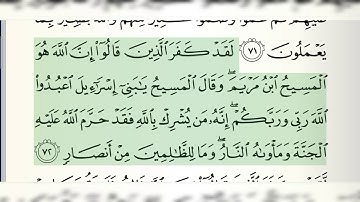 يَعْمَلُونَ ٧١ لَقَدْ كَفَرَ ٱلَّذِينَ قَالُوٓا۟ إِنَّ ٱللَّهَ هُوَ
ٱلْمَسِيحُ ٱبْنُ مَرْيَمَ ۖ وَقَالَ ٱلْمَسِيحُ يَـٰبَنِىٓ إِسْرَٰٓءِيلَ ٱعْبُدُوا۟
ٱللَّهَ رَبِّى وَرَبَّكُمْ ۖ إِنَّهُۥ مَن يُشْرِكْ بِٱللَّهِ فَقَدْ حَرَّمَ ٱللَّهُ عَلَيْهِ
ٱلْجَنَّةَ وَمَأْوَىٰهُ ٱلنَّارُ ۖ وَمَا لِلظَّـٰلِمِينَ مِنْ أَنصَارٍ ٧٢